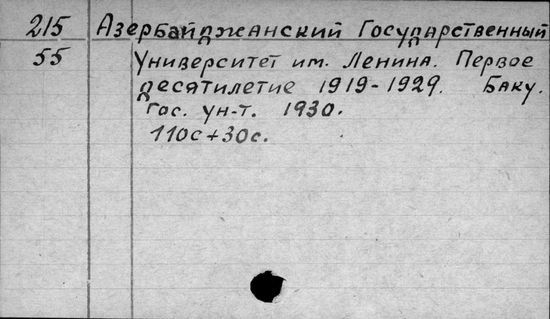 215 Азербайджанский Государственный
55 Университет им. Ленина. Первое
десятилетие 1919-1929. Баку.
Гос. ун-т. 1930.
110с+30с.